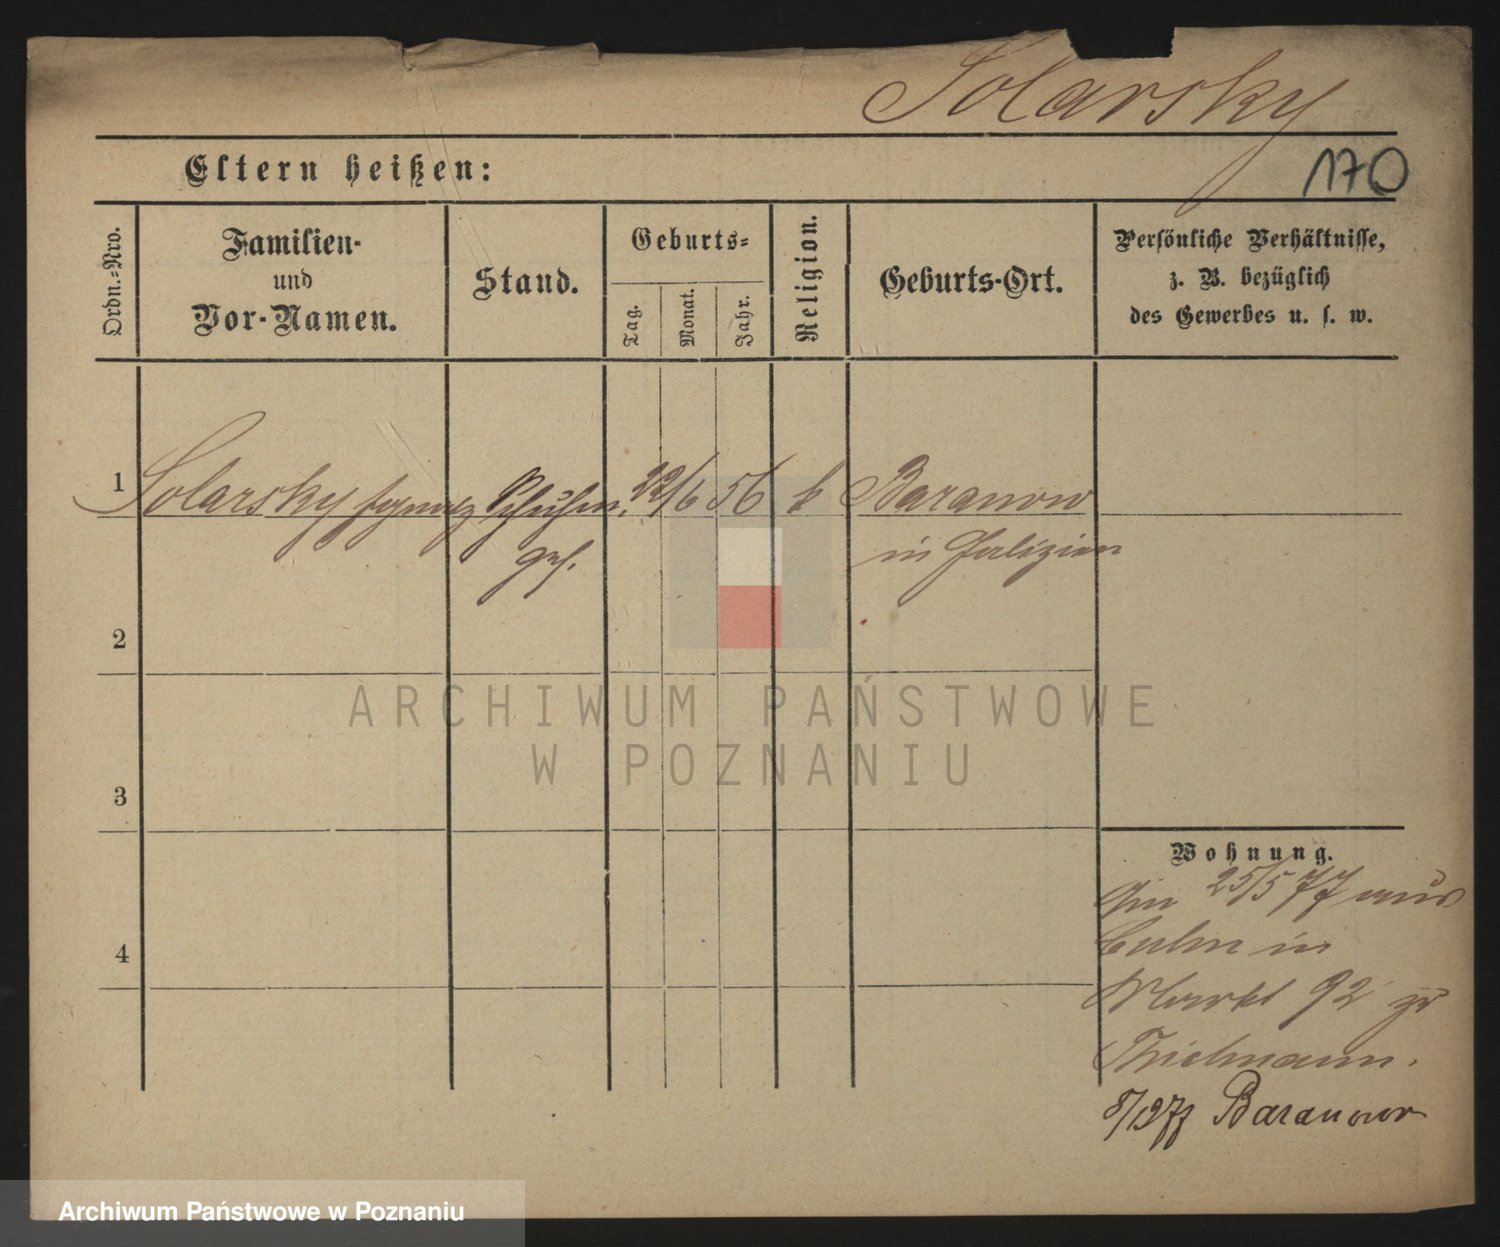 Solarsky
Eltern heißen:
170
Ordn.-Nro.
Familien-
und
Vor-Namen.
Stand.
Geburts-
Tag.
Monat.
Jahr.
Religion.
Geburts-Ort.
Persönliche Verhältnisse,
z. B. bezüglich
des Gewerbes u. s. w.
1
Solarsky Ignatz
Schuhm.
ges.
22/6 56
k
Baranow
in Galizien
2
3
4
Wohnung.
Am 25/5 77 aus
Culm in
Markt 92 zu
Thielmann.
8/12 77 Baranow
ARCHIWUM PAŃSTWOWE
W POZNANIU
Archiwum Państwowe w Poznaniu